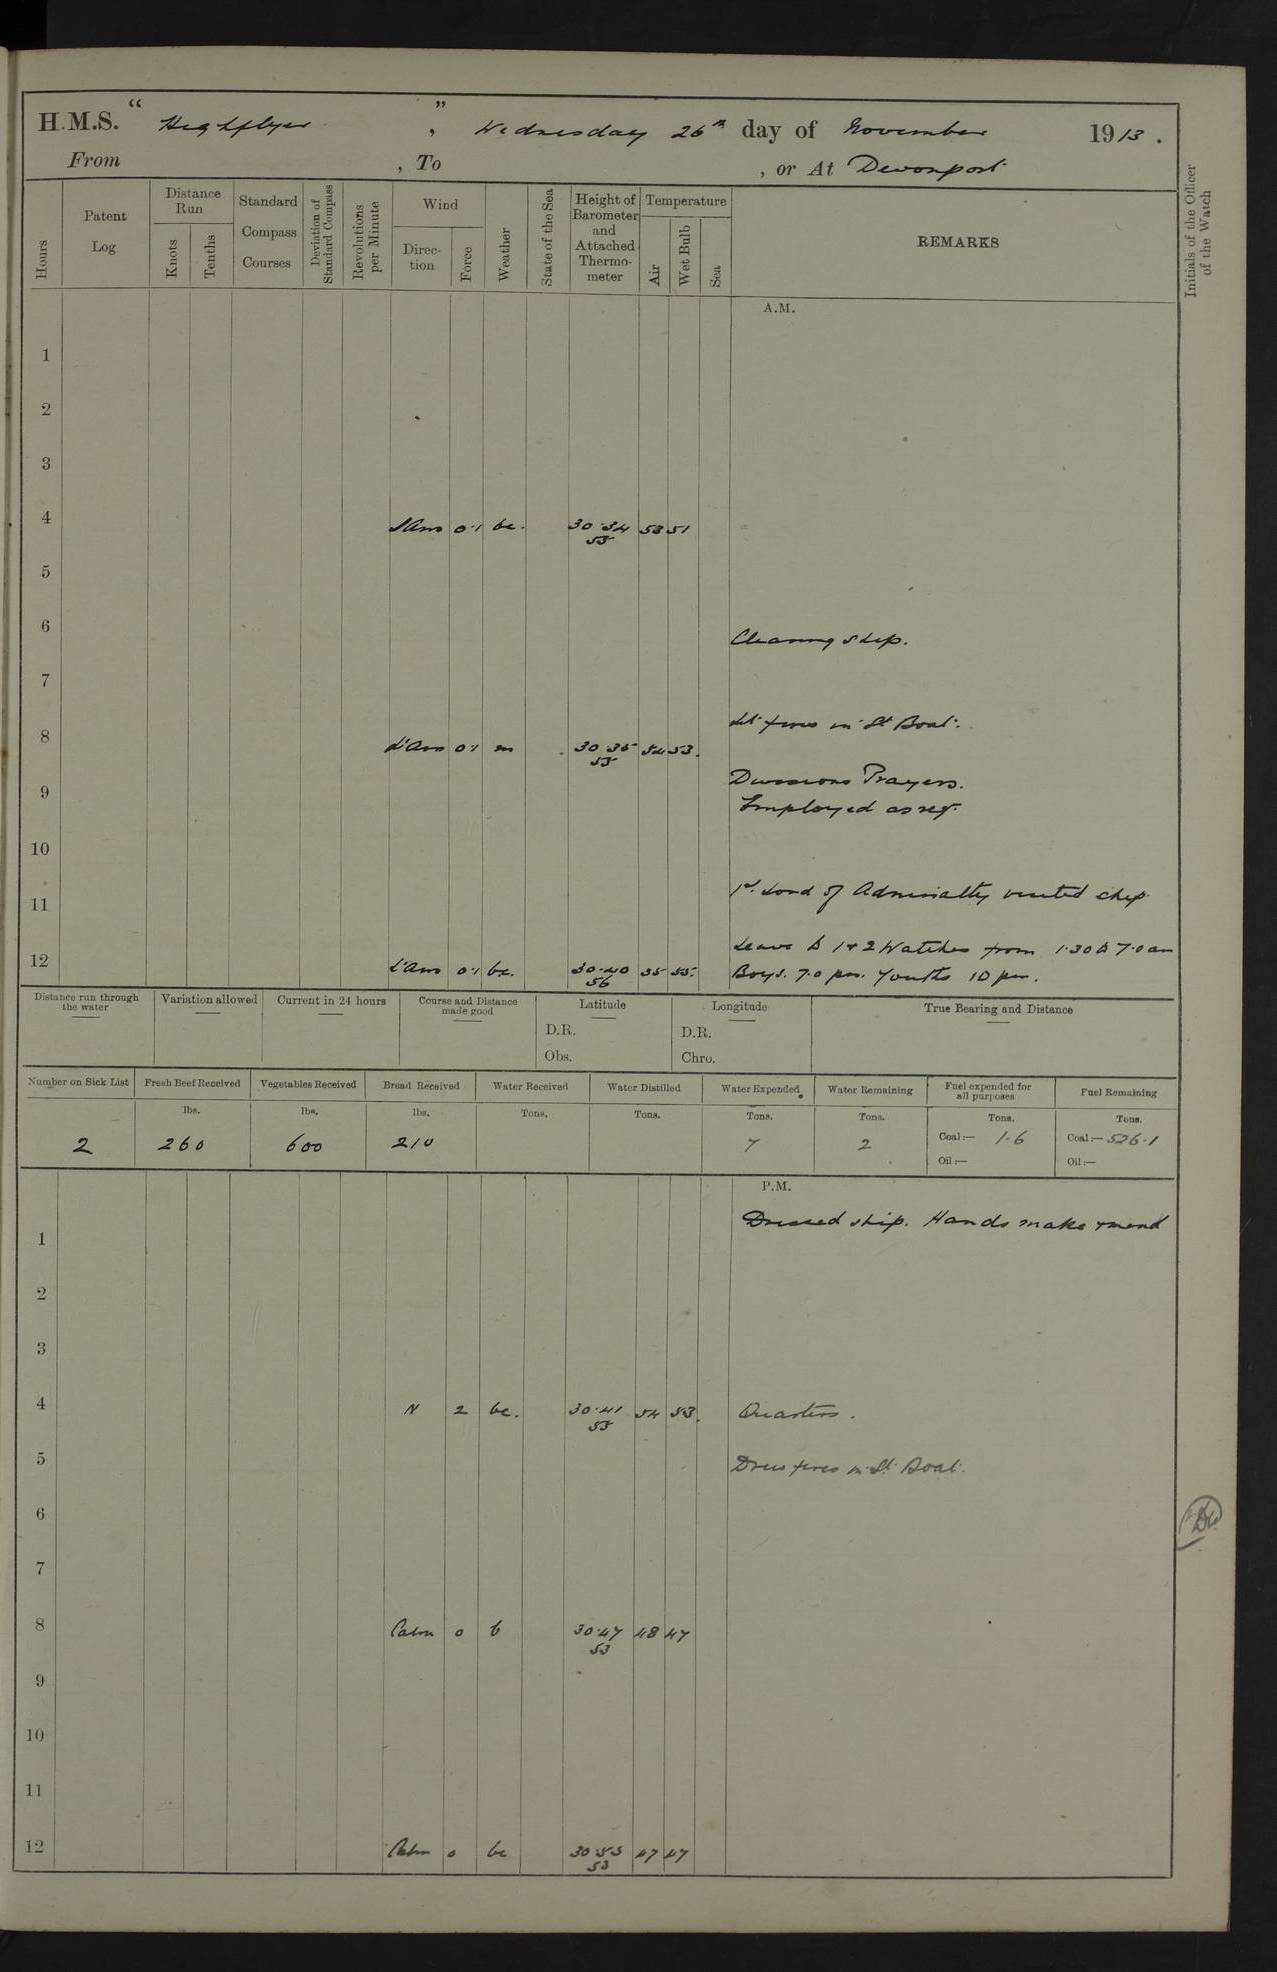 H.M.S. " Highflyer " , Wednesday 26th day of November 1913.
From , To , or At Devonport
Hours
Patent Log
Distance Run
Knots
Tenths
Standard Compass Courses
Deviation of Standard Compass
Revolutions per Minute
Wind
Direction
Force
Weather
State of the Sea
Height of Barometer and Attached Thermometer
Temperature
Air
Wet Bulb
Sea
REMARKS
Initials of the Officer of the Watch
A.M.
1
2
3
4 L'Airs 0.1 bc. 30.34 53 51
55
5
6 Cleaning ship.
7
Lit fires in St Boat.
8 L'Airs 0.1 m 30 35 54 53.
55
Divisions Prayers.
9
Employed as req.
10
1st Lord of Admiralty visited ship
11
Leave to 1 & 2 Watches from 1.30 to 7.0 am
12 L'Airs 0.1 bc. 30.40 55 53. Boys. 7.0 pm. Youths 10 pm.
56
Distance run through the water
Variation allowed
Current in 24 hours
Course and Distance made good
Latitude
D.R.
Obs.
Longitude
D.R.
Chro.
True Bearing and Distance
Number on Sick List Fresh Beef Received Vegetables Received Bread Received Water Received Water Distilled Water Expended Water Remaining Fuel expended for all purposes Fuel Remaining
lbs. lbs. lbs. Tons. Tons. Tons. Tons. Tons. Tons.
2 260 600 210 7 2 Coal:— 1.6 Coal:— 526.1
Oil:— Oil:—
P.M.
Dressed ship. Hands make & mend
1
2
3
4 N 2 bc. 30.41 54 53. Quarters.
55
5 Drew fires in St Boat.
6
7
8 Calm 0 b 30.47 48 47
53
9
10
11
12 Calm 0 bc 30 53 47 47
53